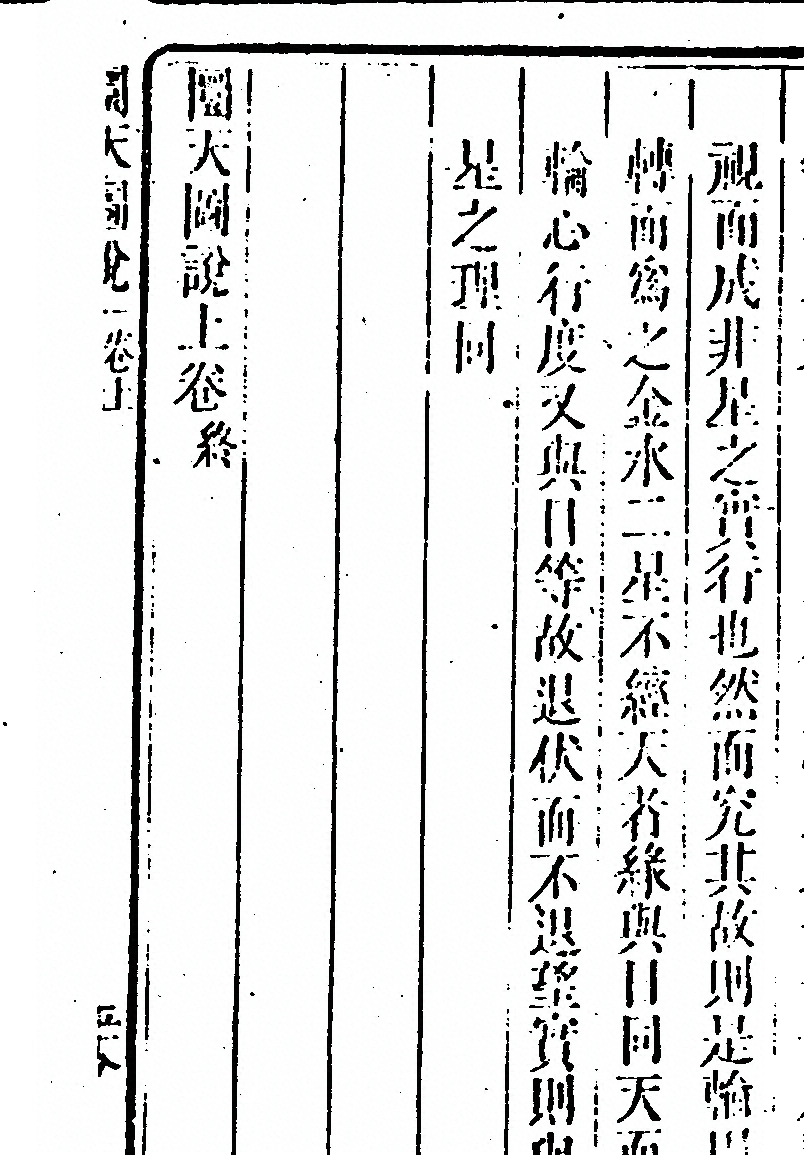 視而成非星之實行也然而究其故則是輪
轉而爲之金水二星不經天者緣與日同天而
輪心行度又與日等故退伏而不退望實則與
星之理同
圜天圖說上卷終
天圖說 卷上